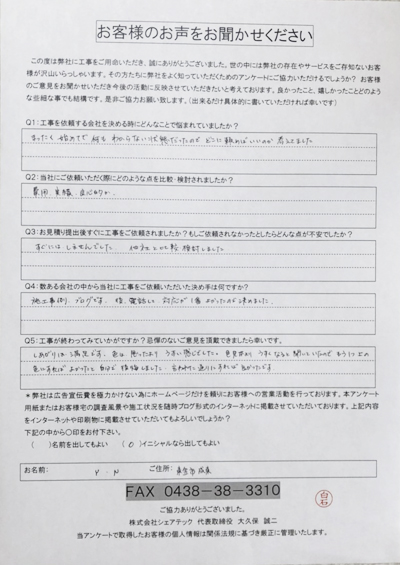 お客様のお声をお聞かせください
この度は弊社に工事をご用命いただき、誠にありがとうございました。世の中には弊社の存在やサービスをご存知ないお客様
が沢山いらっしゃいます。その方たちに弊社をよく知っていただくためのアンケートにご協力いただけるでしょうか？ お客様
のご意見をお聞かせいただき今後の活動に反映させていただきたいと考えております。良かったこと、嬉しかったことどのよう
な些細な事でも結構です。是非ご協力お願い致します。（出来るだけ具体的に書いていただければ幸いです）
Q1：工事を依頼する会社を決める時にどんなことで悩まれていましたか？
まったく 始めてで 何も わからない状態だったので どこに頼めばいいのか 考えてました
Q2：当社にご依頼いただく際にどのような点を比較・検討されましたか？
費用、実績、
Q3：お見積り提出後すぐに工事をご依頼されましたか？もしご依頼されなかったとしたらどんな点が不安でしたか？
すぐには しませんでした。 他社との比較 検討しました
Q4：数ある会社の中から当社に工事をご依頼いただいた決め手は何ですか？
施工事例、ブログです。 後、電話しての 対応が 1番 よかったので 決めました。
Q5：工事が終わってみていかがですか？忌憚のないご意見を頂戴できましたら幸いです。
しあがりは 満足です。色は、思ったより うすい感じでした。見本より うすくなると 聞いていたので もう1つ上の
色にすれば よかったと 自分で 後悔しました。
＊弊社は広告宣伝費を極力かけない為にホームページだけを頼りにお客様への営業活動を行っております。本アンケート
用紙またはお客様宅の調査風景や施工状況を随時ブログ形式のインターネットに掲載させていただいております。上記内容
をインターネットや印刷物に掲載させていただいてもよろしいでしょうか？
下記の中から〇印をお付下さい。
（ ）名前を出してもよい （ 〇 ）イニシャルなら出してもよい
お名前： Y.N ご住所：
FAX 0438-38-3310
白石
ご協力ありがとうございました。
株式会社シェアテック 代表取締役 大久保 誠二
当アンケートで取得したお客様の個人情報は関係法規に基づき厳正に管理いたします。